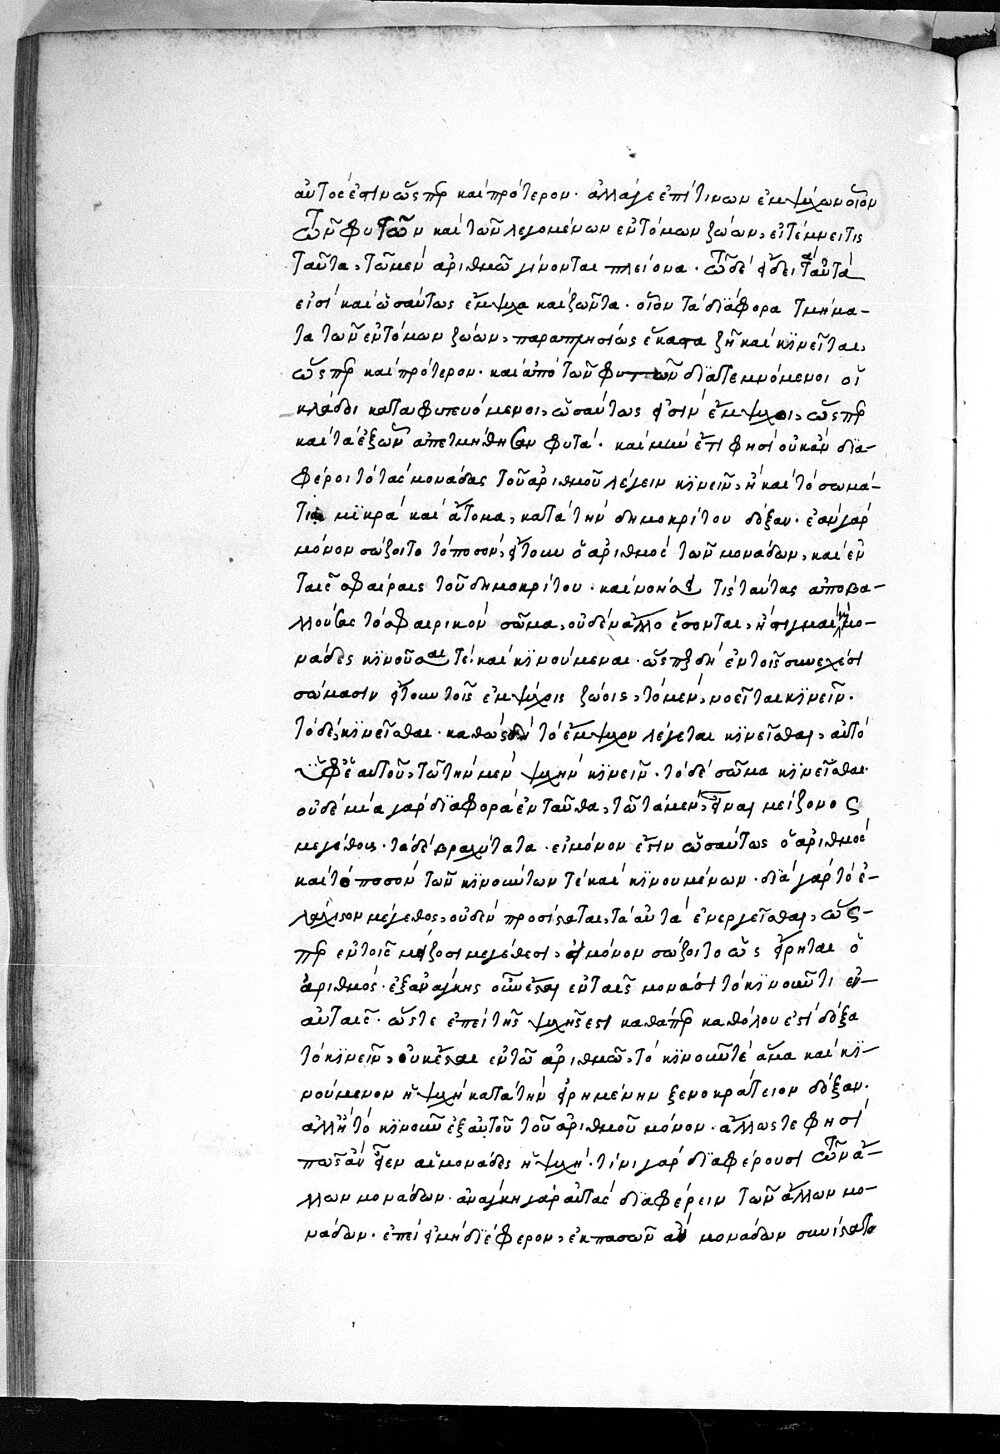 αὐτός ἐστιν ὥςπερ καὶ πρότερον· ἀλλά γε ἐπί τινων ἐμψύχων οἷον
τῶν φυτῶν καὶ τῶν λεγομένων ἐντόμων ζώων, εἰ τέμνει τις
ταῦτα, τῷ μὲν ἀριθμῷ γίνονται πλείονα· τῷ δὲ εἴδει ταὐτά
εἰσι καὶ ὡσαύτως ἔμψυχα καὶ ζῶντα· οἷον τὰ διάφορα τμήμα-
τα τῶν ἐντόμων ζώων, παραπλησίως ἕκαστα ζῇ καὶ κινεῖται,
ὥςπερ καὶ πρότερον· καὶ ἀπὸ τῶν φυτῶν διατεμνόμενοι οἱ
κλάδοι καταφυτευόμενοι, ὡσαύτως εἰσὶν ἔμψυχοι, ὥςπερ
καὶ τὰ ἐξ ὧν ἀπετμήθησαν φυτά· καὶ μὴν ἔτι φησὶ οὐκ ἂν δια-
φέροι τὸ τὰς μονάδας τοῦ ἀριθμοῦ λέγειν κινεῖν, ἢ καὶ τὸ σωμά-
τια μικρὰ καὶ ἄτομα, κατὰ τὴν δημοκρίτου δόξαν· ἐὰν γὰρ
μόνον σώζοιτο τὸ ποσόν, ἤτουν ὁ ἀριθμὸς τῶν μονάδων, καὶ ἐν
ταῖς σφαίραις τοῦ δημοκρίτου· καὶ νοήσει τις ταύτας ἀποβα-
λλούσας τὸ σφαιρικὸν σῶμα, οὐδὲν ἄλλο ἔσονται, ἢ στιγμαὶ καὶ μο-
νάδες κινοῦσαί τε καὶ κινούμεναι· ὥςπερ δὴ ἐν τοῖς συνεχέσι
σώμασιν ἤτουν τοῖς ἐμψύχοις ζώοις, τὸ μὲν, νοεῖται κινεῖν·
τὸ δὲ, κινεῖσθαι· καθὼς δὴ τὸ ἔμψυχον λέγεται κινεῖσθαι, αὐτὸ
ὑφ' ἑαυτοῦ, τῷ τὴν μὲν ψυχὴν κινεῖν· τὸ δὲ σῶμα κινεῖσθαι·
οὐδεμία γὰρ διαφορὰ ἐνταῦθα, τῷ τὰ μὲν, εἶναι μείζονος
μεγέθους· τὰ δὲ βραχύτατα· εἰ μόνον ἔστιν ὡσαύτως ὁ ἀριθμὸς
καὶ τὸ ποσὸν τῶν κινούντων τε καὶ κινουμένων· διὰ γὰρ τὸ ἐ-
λάχιστον μέγεθος, οὐδὲν προσίσταται, τὰ αὐτὰ ἐνεργεῖσθαι, ὥς-
περ ἐν τοῖς μείζοσι μεγέθεσι, εἰ μόνον σώζοιτο ὡς εἴρηται ὁ
ἀριθμός· ἐξ ἀνάγκης οὖν ἔσται ἐν ταῖς μονάσι τὸ κινοῦν τι ἐν-
αὐταῖς· ὥστε ἐπεὶ τῆς ψυχῆς ἐστὶ καθάπερ καθόλου ἐστὶ δόξα
τὸ κινεῖν, οὐκ ἔσται ἐν τῷ ἀριθμῷ, τὸ κινοῦν τε ἅμα καὶ κι-
νούμενον ἡ ψυχὴ κατὰ τὴν εἰρημένην ξενοκράτειον δόξαν·
ἀλλ' ἢ τὸ κινοῦν ἐξ αὐτοῦ τοῦ ἀριθμοῦ μόνον· ἄλλως τε φησὶ
πῶς ἂν εἶεν αἱ μονάδες ἡ ψυχή· τίνι γὰρ διαφέρουσι τῶν ἄ-
λλων μονάδων· ἀνάγκη γὰρ αὐτὰς διαφέρειν τῶν ἄλλων μο-
νάδων· ἐπεὶ εἰ μὴ διέφερον, ἐκ πασῶν ἂν μονάδων συνίστατο